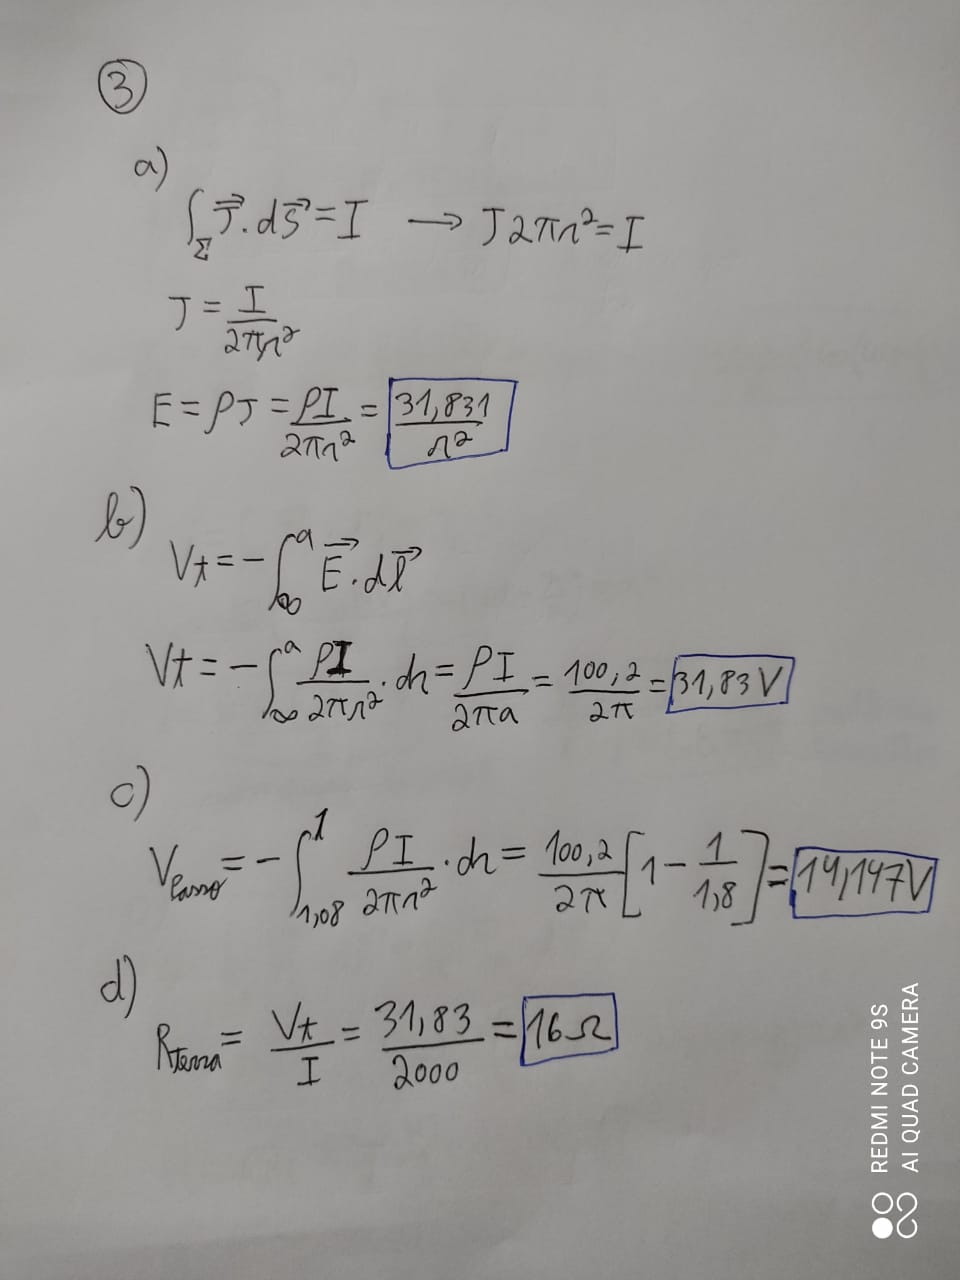 3
a)
∫_Σ J⃗ . dS⃗ = I → J 2πr² = I
J = I / 2πr²
E = ρJ = ρI / 2πr² = 31,831 / r²
b)
Vt = - ∫_∞^a E⃗ . dl⃗
Vt = - ∫_∞^a ρI / 2πr² . dr = ρI / 2πa = 100,2 / 2π = 31,83 V
c)
Vpasso = - ∫_1,08^1 ρI / 2πr² . dr = 100,2 / 2π [1 - 1 / 1,8] = 14,147V
d)
Rterra = Vt / I = 31,83 / 2000 = 16Ω
REDMI NOTE 9S
AI QUAD CAMERA